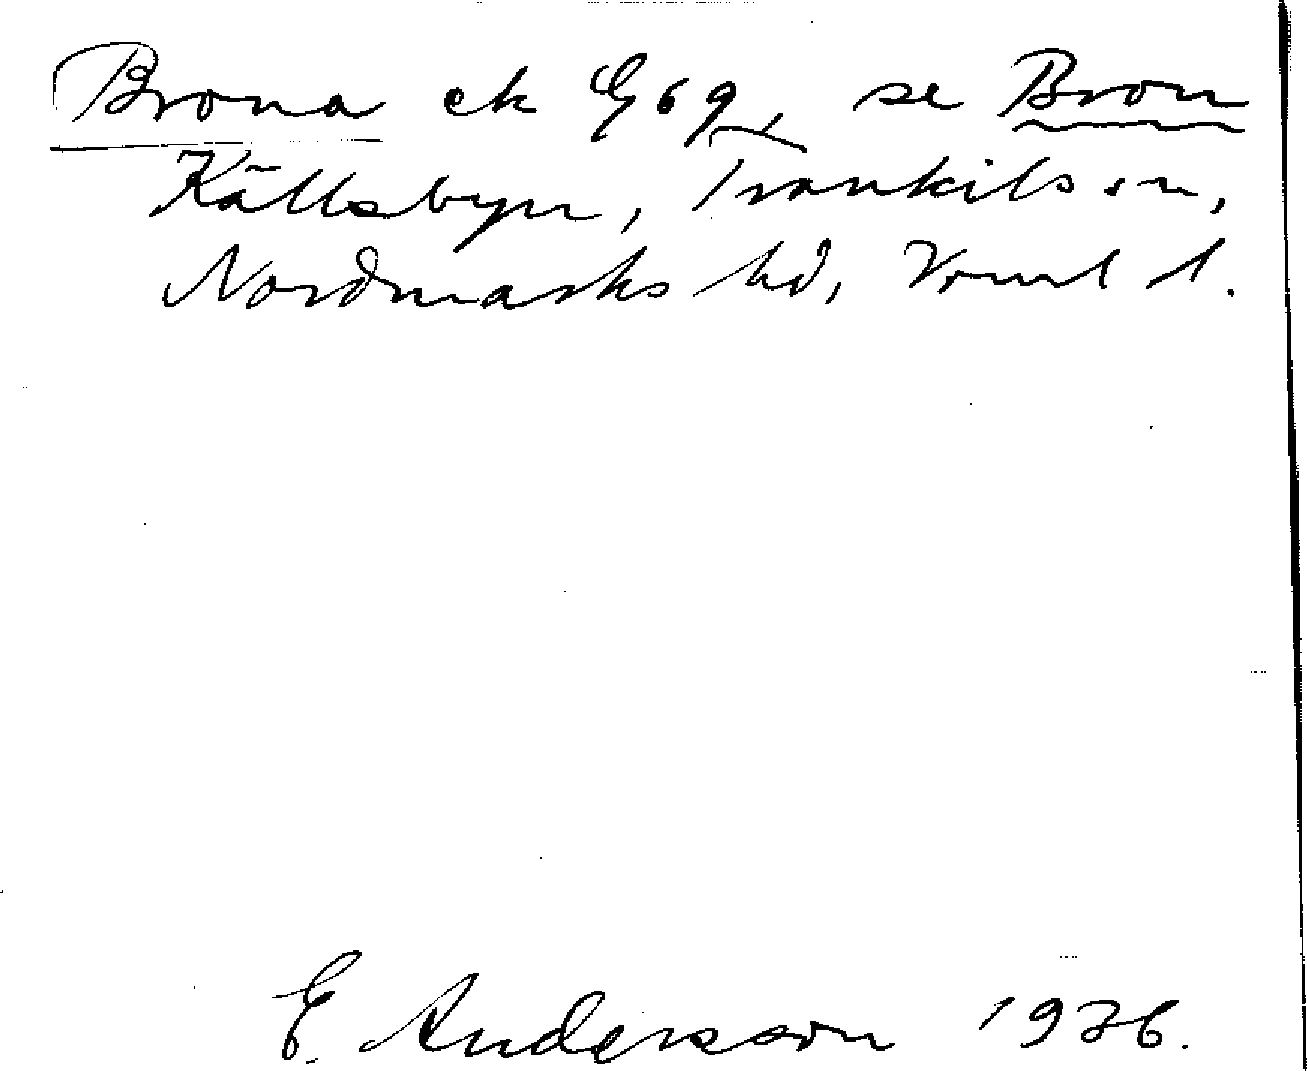 Brona ek G69 se Bron
Källsbyn, Trankils sn,
Nordmarks hd, Vrml l.
E Andersson 1936.